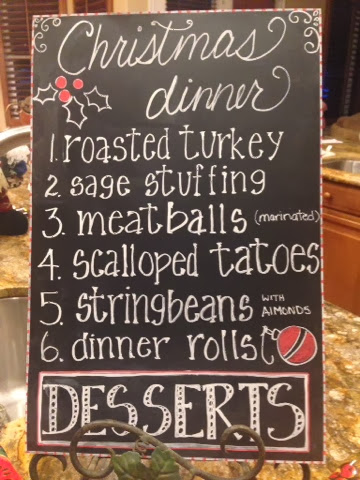 Christmas
dinner
1. roasted turkey
2. sage stuffing
3. meatballs (marinated)
4. scalloped tatoes
5. stringbeans WITH AlMONDS
6. dinner rolls
DESSERTS